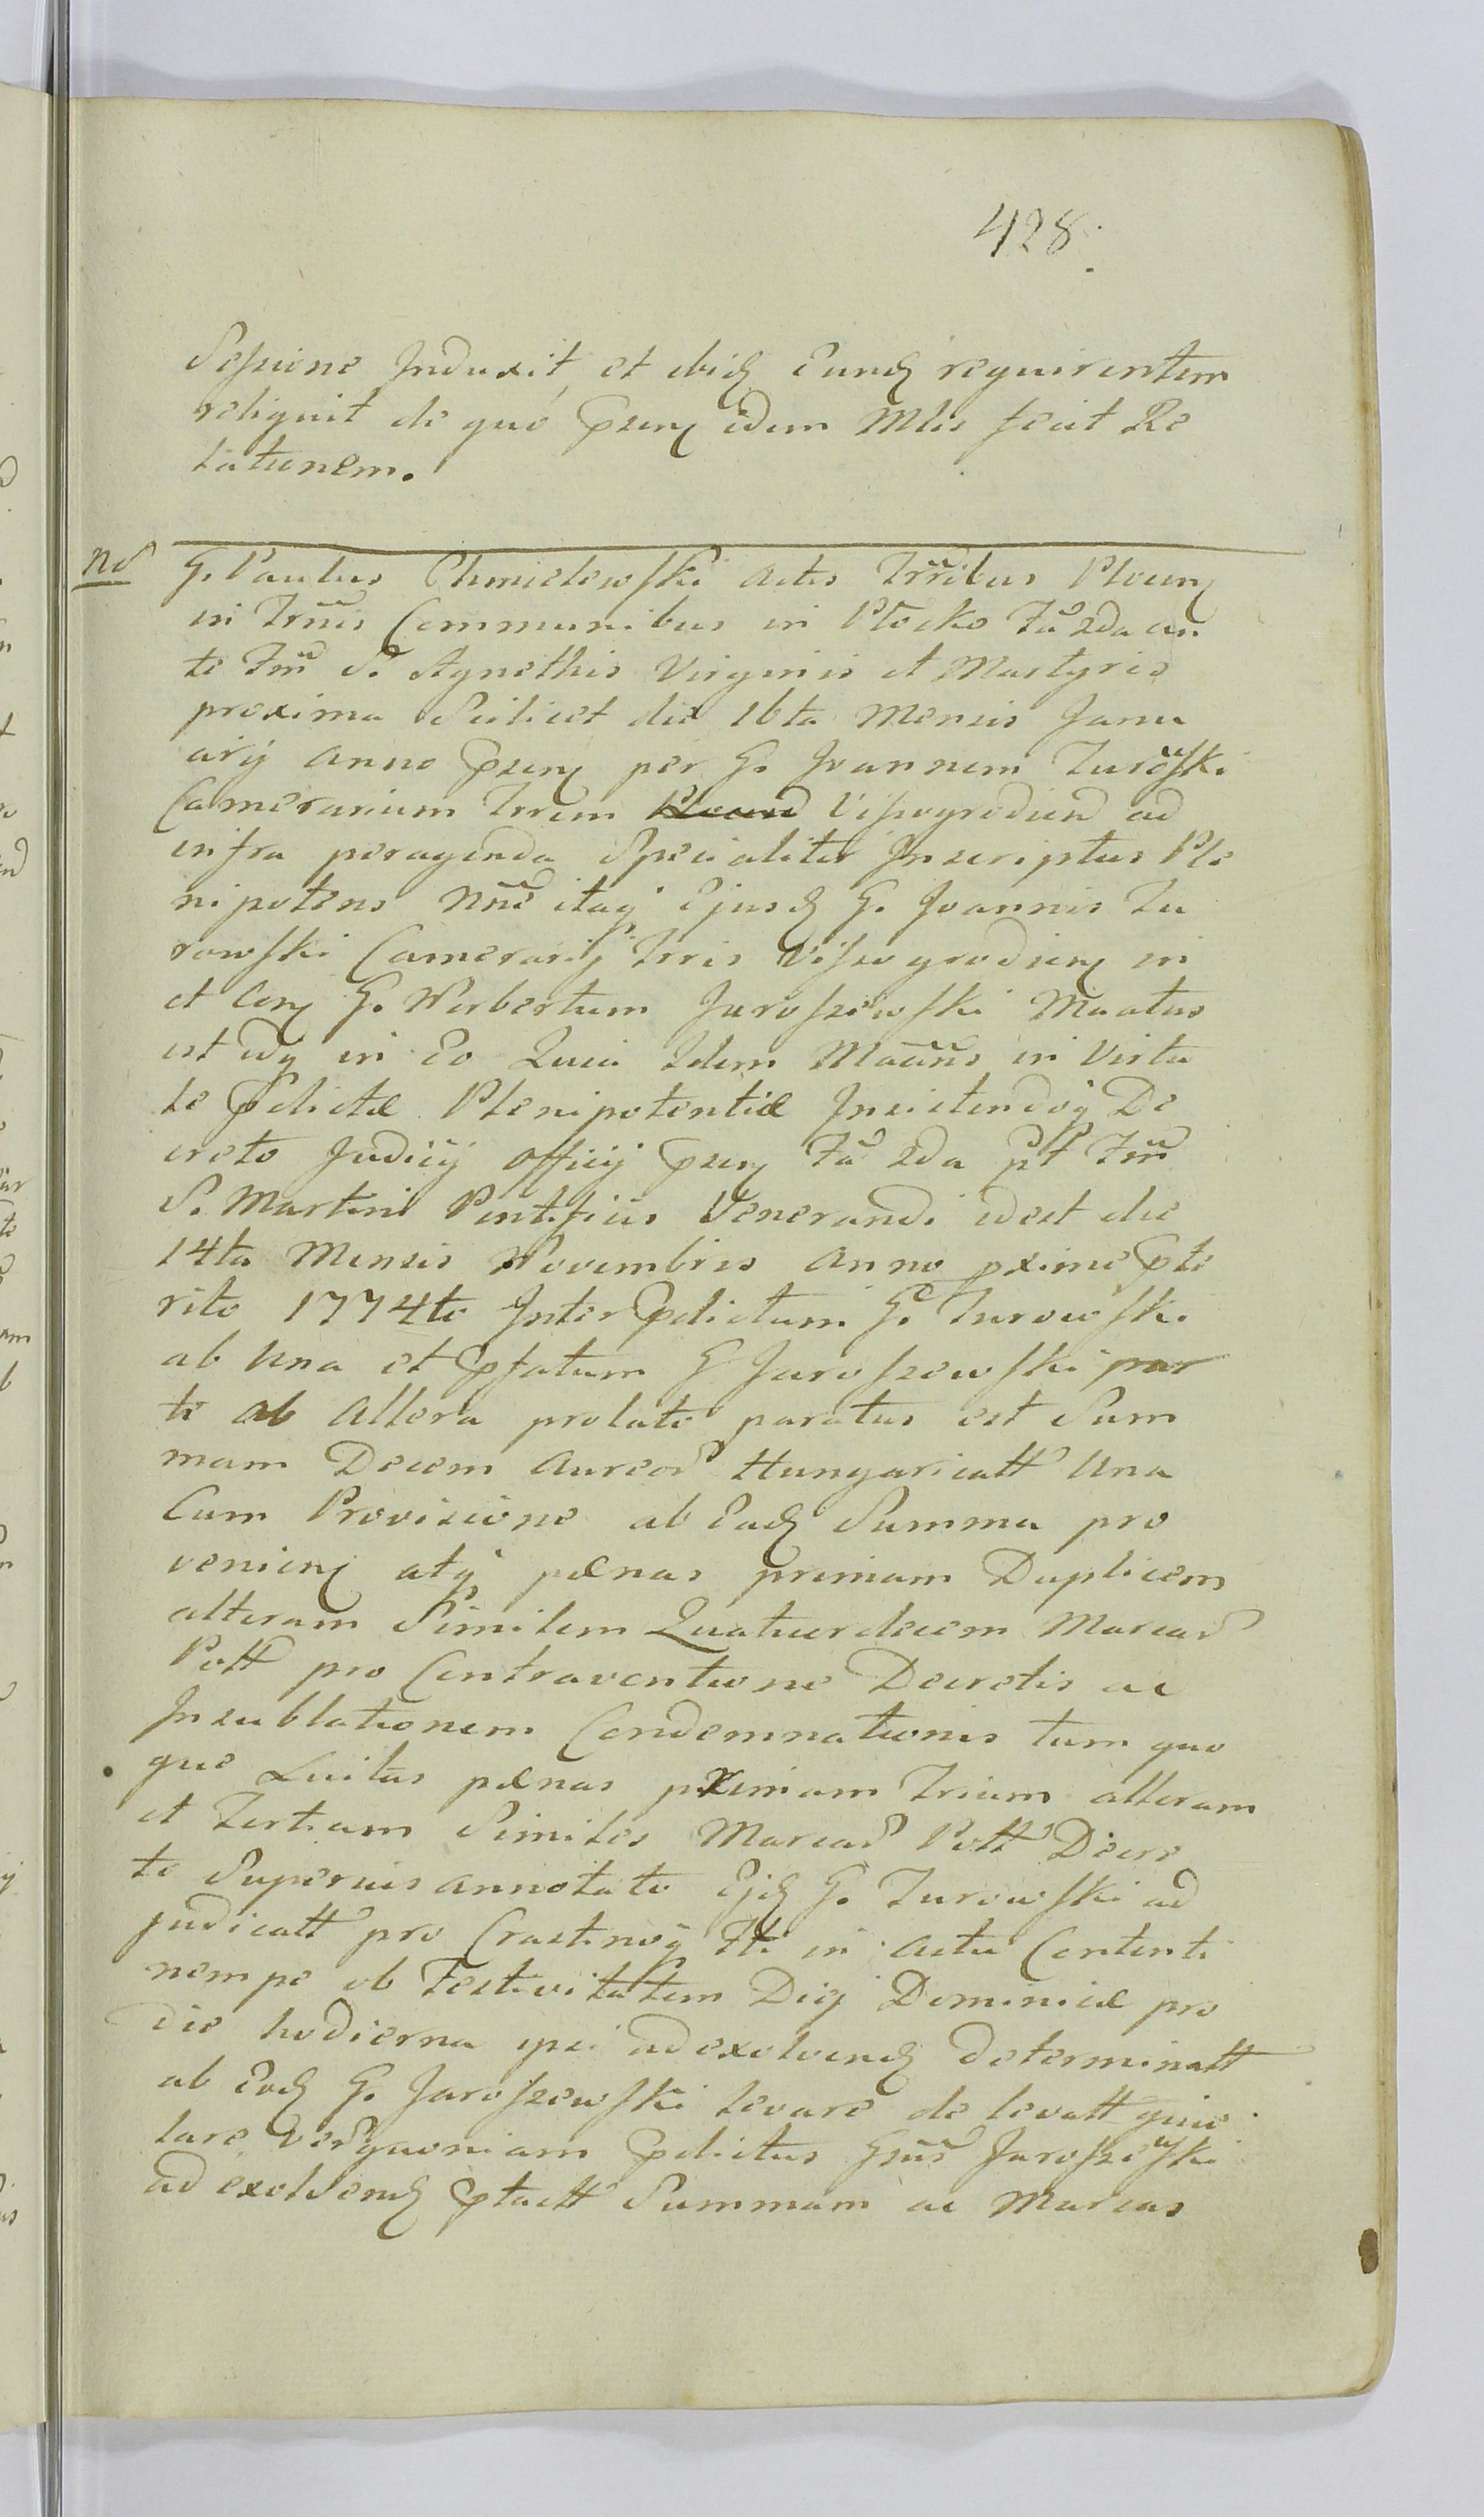 428.
Seſsione Induxit, et ibidꝫ Eundꝫ requirentem
reliquit de quo Ꝓsenꝫ idem Mlis fecit Re
lationem.
nd G. Paulus Chmielewſki Actis Trr̃ibus Plocenꝫ
in Trm̃is Communibus in Płocko Fã 2da an
te Fm̃ S. Agnethis Virginis et Martyris
proxima Scilicet die 16ta Mensis Janu
arij Anno Ꝓsenꝫ per G. Joannem Turowſki
Camerarium Trrem Viſzogrodien ad
infra peragenda Specialiter Inscriptus Ple
nipotens Nñe itaqꝫ Ejusdꝫ G. Joannis Tu
rowſki Camerarij Trris Viſzogrodienꝫ in
et Conꝫ G. Norbertum Jaroſzewſki Mãatus
est idqꝫ in Eo Quia Idem Mãans in Virtu
te Ꝓdictæ Plenipotentiæ Insistendoqꝫ De
creto Judicij Officij Ꝓsenꝫ Fã 2da pt Fm̃
S. Martini Pontificis Venerandi idest die
14ta Mensis Novembris Anno pxime Ꝓte
rito 1774to Inter Ꝓdictum G. Turowſki
ab Una et Ꝓfatum G Jaroſzewſki par
te ab Altera prolato paratus est Sum
mam Decem Aureor Hungaricatt Una
Cum Provisione ab Eadꝫ Summa pro
venienꝫ atqꝫ pænas primam Duplicem
alteram Similem Quatuordecem Marcar
Poll pro Contraventione Decretis ac
Insublationem Condemnationis tum quo
que Luitas pænas primam Trium alteram
et Tertiam Similes Marcar Poll Decre
to Superius annotato Ejdꝫ G. Turowſki ad
judicatt pro Crastinoqꝫ Itti in Actu Contenti
nempe ob Festivitatem Diej Dominicæ pro
die hodierna ipsi ad exolvendꝫ determinatt
ab Eodꝫ G. Jaroſzewſki levare de levatt quie
tare Ver quoniam Ꝓdictus Gñus Jaroſzewſki
ad exolvendꝫ Ꝓtactt Summam ac Marcas